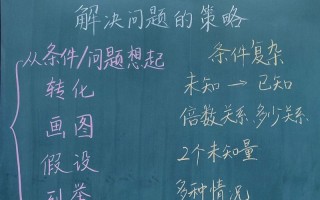 解决问题的策略
从条件/问题想起 条件复杂
转化 未知→已知
画图 倍数关系、多少关系
假设 2个未知量
列举 多种情况